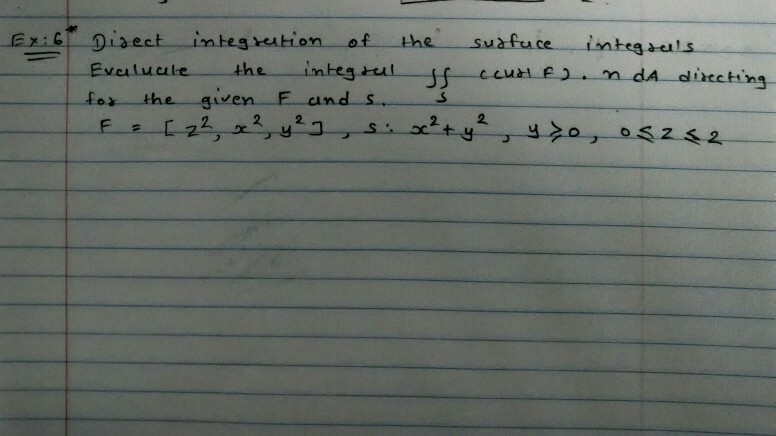 Ex:6* Direct integration of the surface integral's
Evaluate the integral ∫∫ (curl F). n dA directing
S
for the given F and s.
F = [z², x², y²], s: x²+y², y≥0, 0≤z≤2